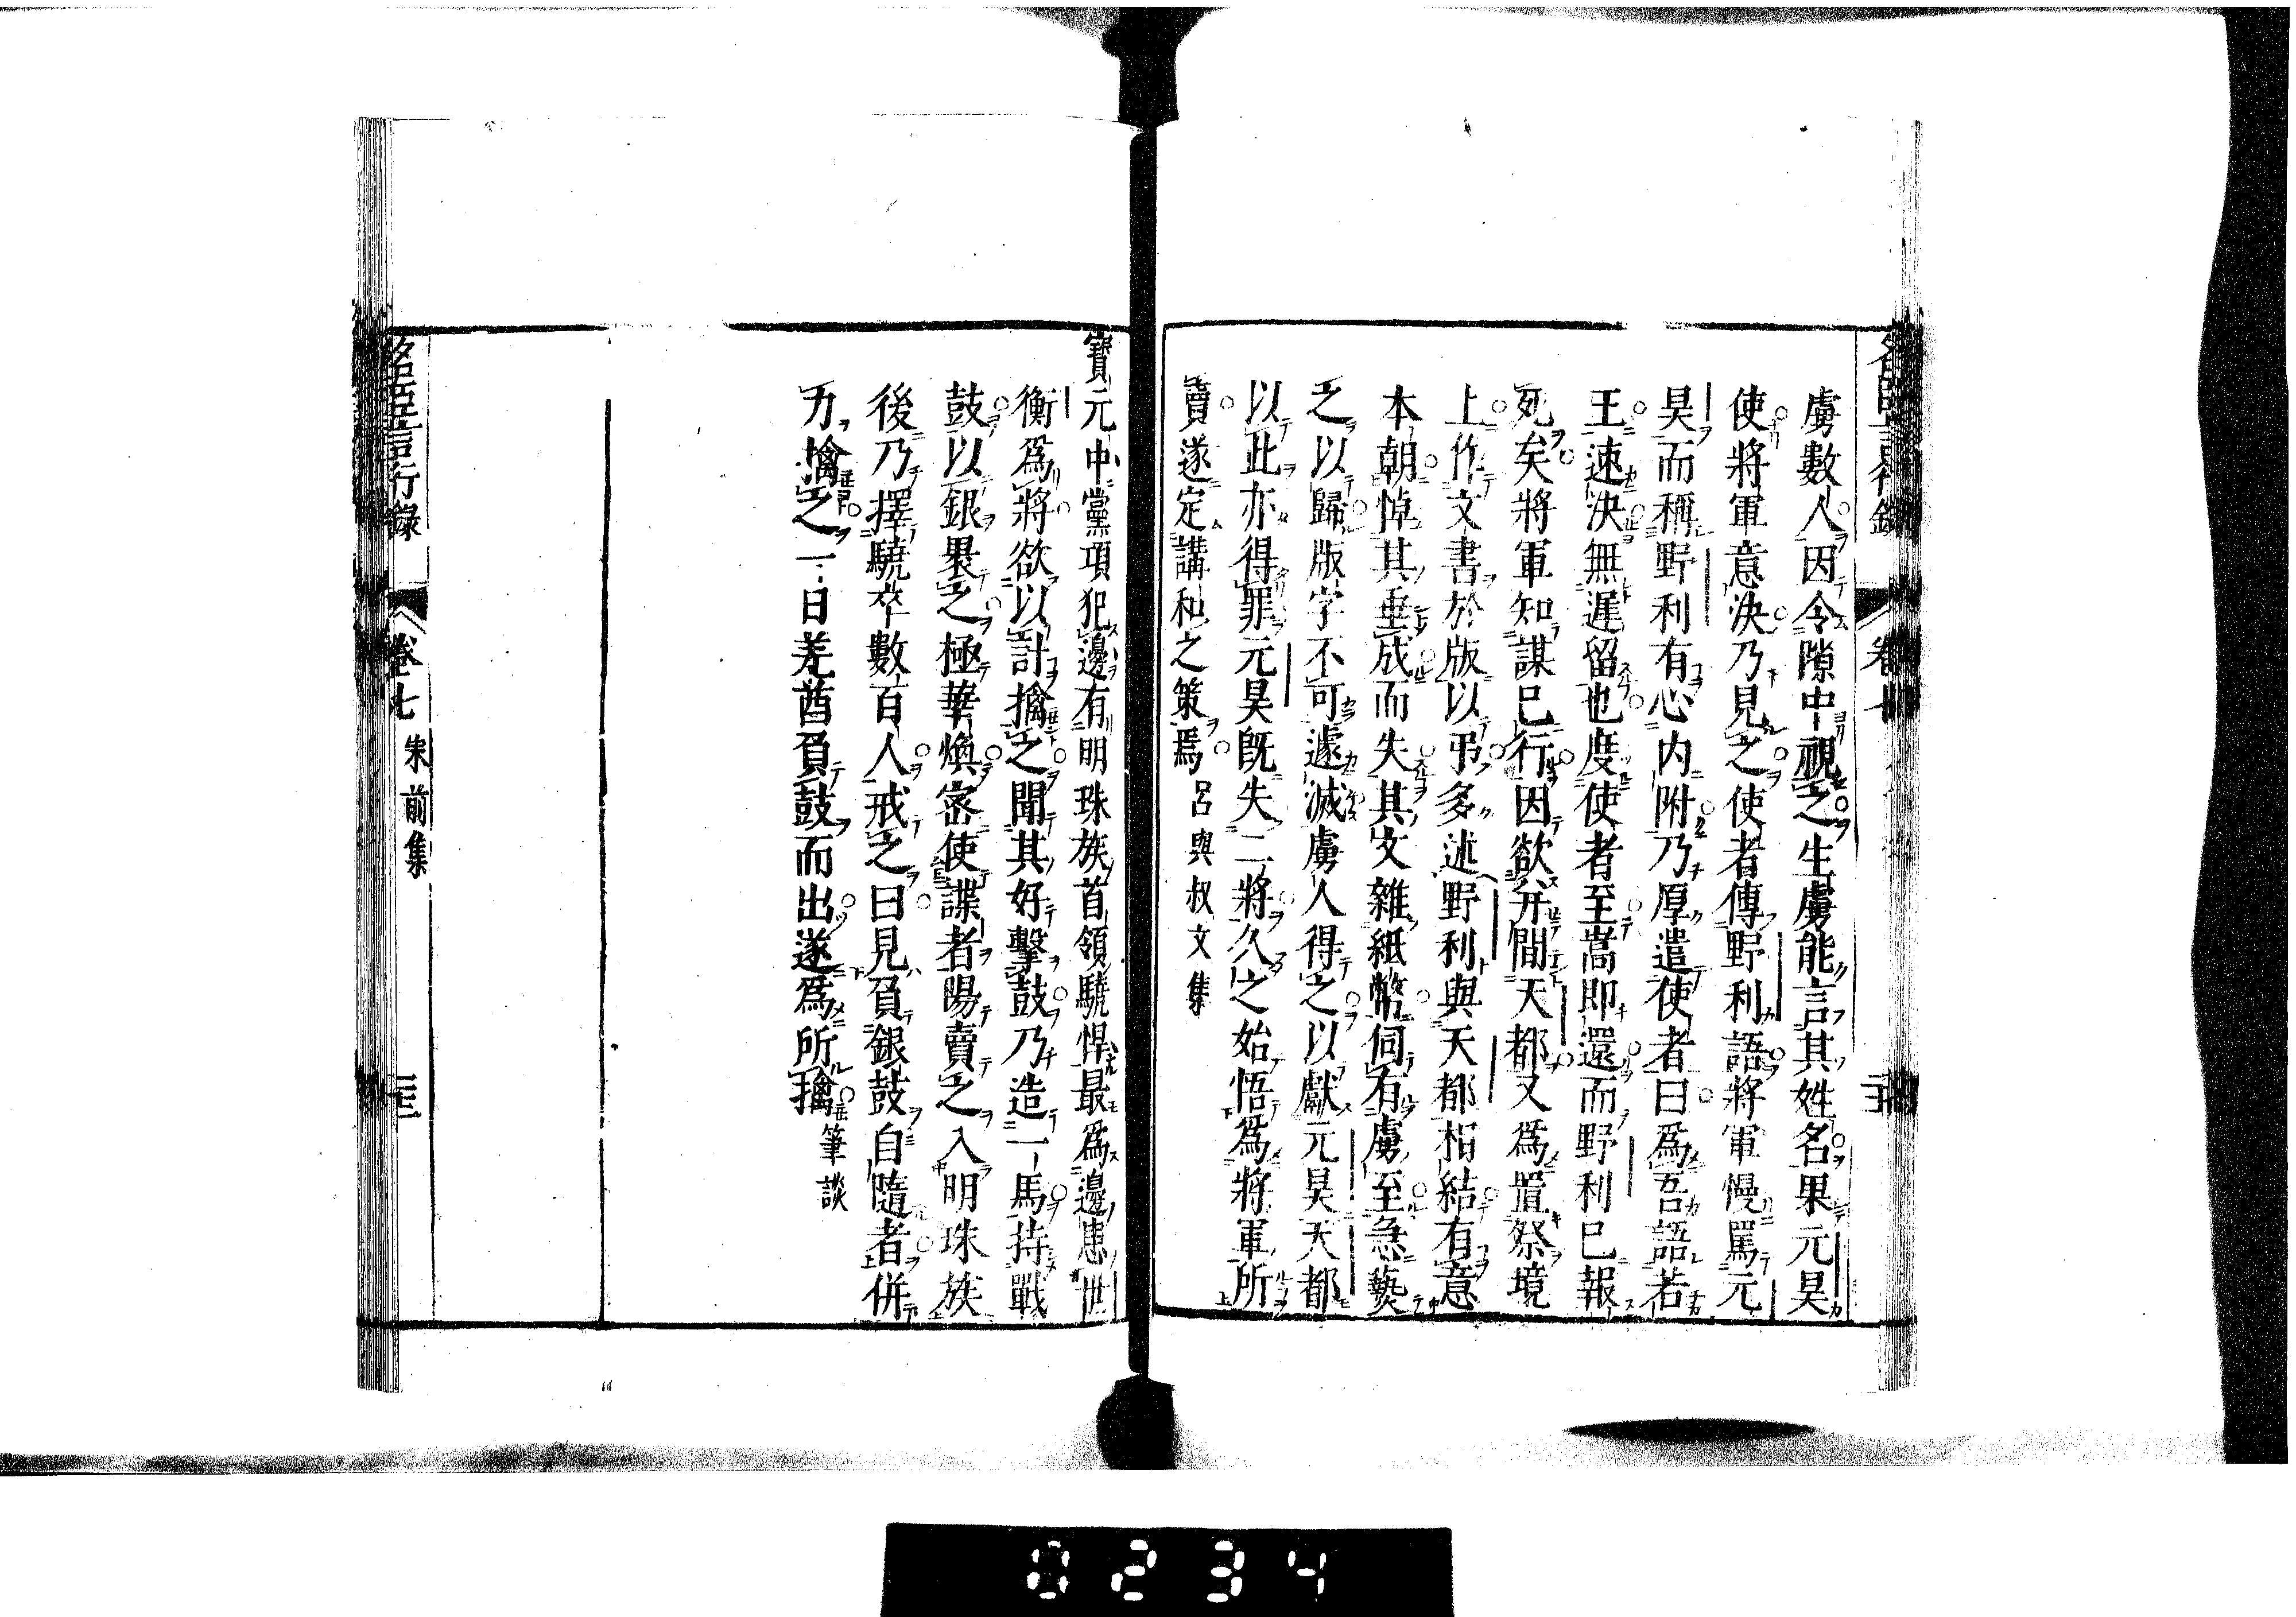 名臣言行錄 卷七
虜數人因令隙中視之生虜能言其姓名果元昊
使將軍意決乃見之使者傳野利語將軍慢罵元
昊而稱野利有心内附乃厚遣使者曰爲吾語若
王速決無遲留也度使者至嵩即還而野利已報
死矣將軍知謀已行因欲并間天都又爲置祭境
上作文書於版以弔多述野利與天都相結有意
本朝悼其垂成而失其文雜紙幣伺有虜至急爇
之以歸版字不可遽滅虜人得之以獻元昊天都
以此亦得罪元昊既失二將久之始悟爲將軍所
賣遂定講和之策焉 呂與叔文集
寶元中黨項犯邊有明珠族首領驍悍最爲邊患世
衡爲將欲以計擒之聞其好擊鼓乃造一馬持戰
鼓以銀裹之極華煥密使諜者陽賣之入明珠族
後乃擇驍卒數百人戒之曰見負銀鼓自隨者併
力擒之一日羌酋負鼓而出遂爲所擒 筆談
名臣言行錄 卷七 宋前集
0234